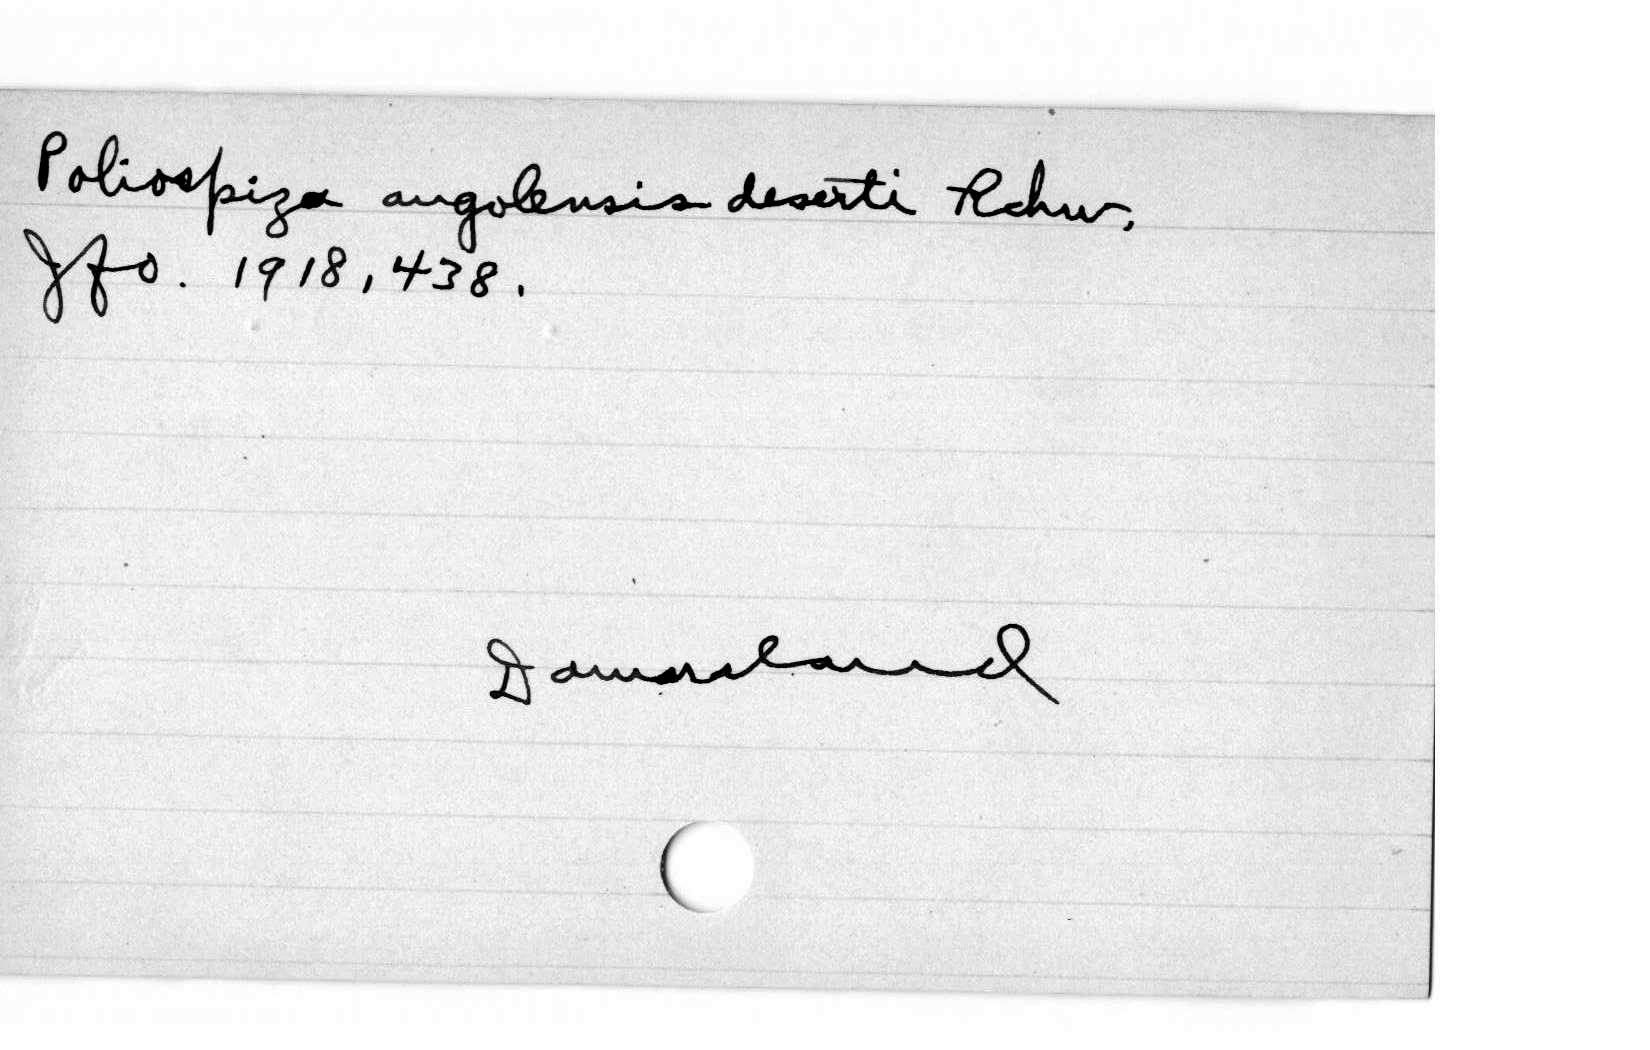 Poliospiza angolensis deserti Rchw,
Jfo. 1918, 438.
Damaraland